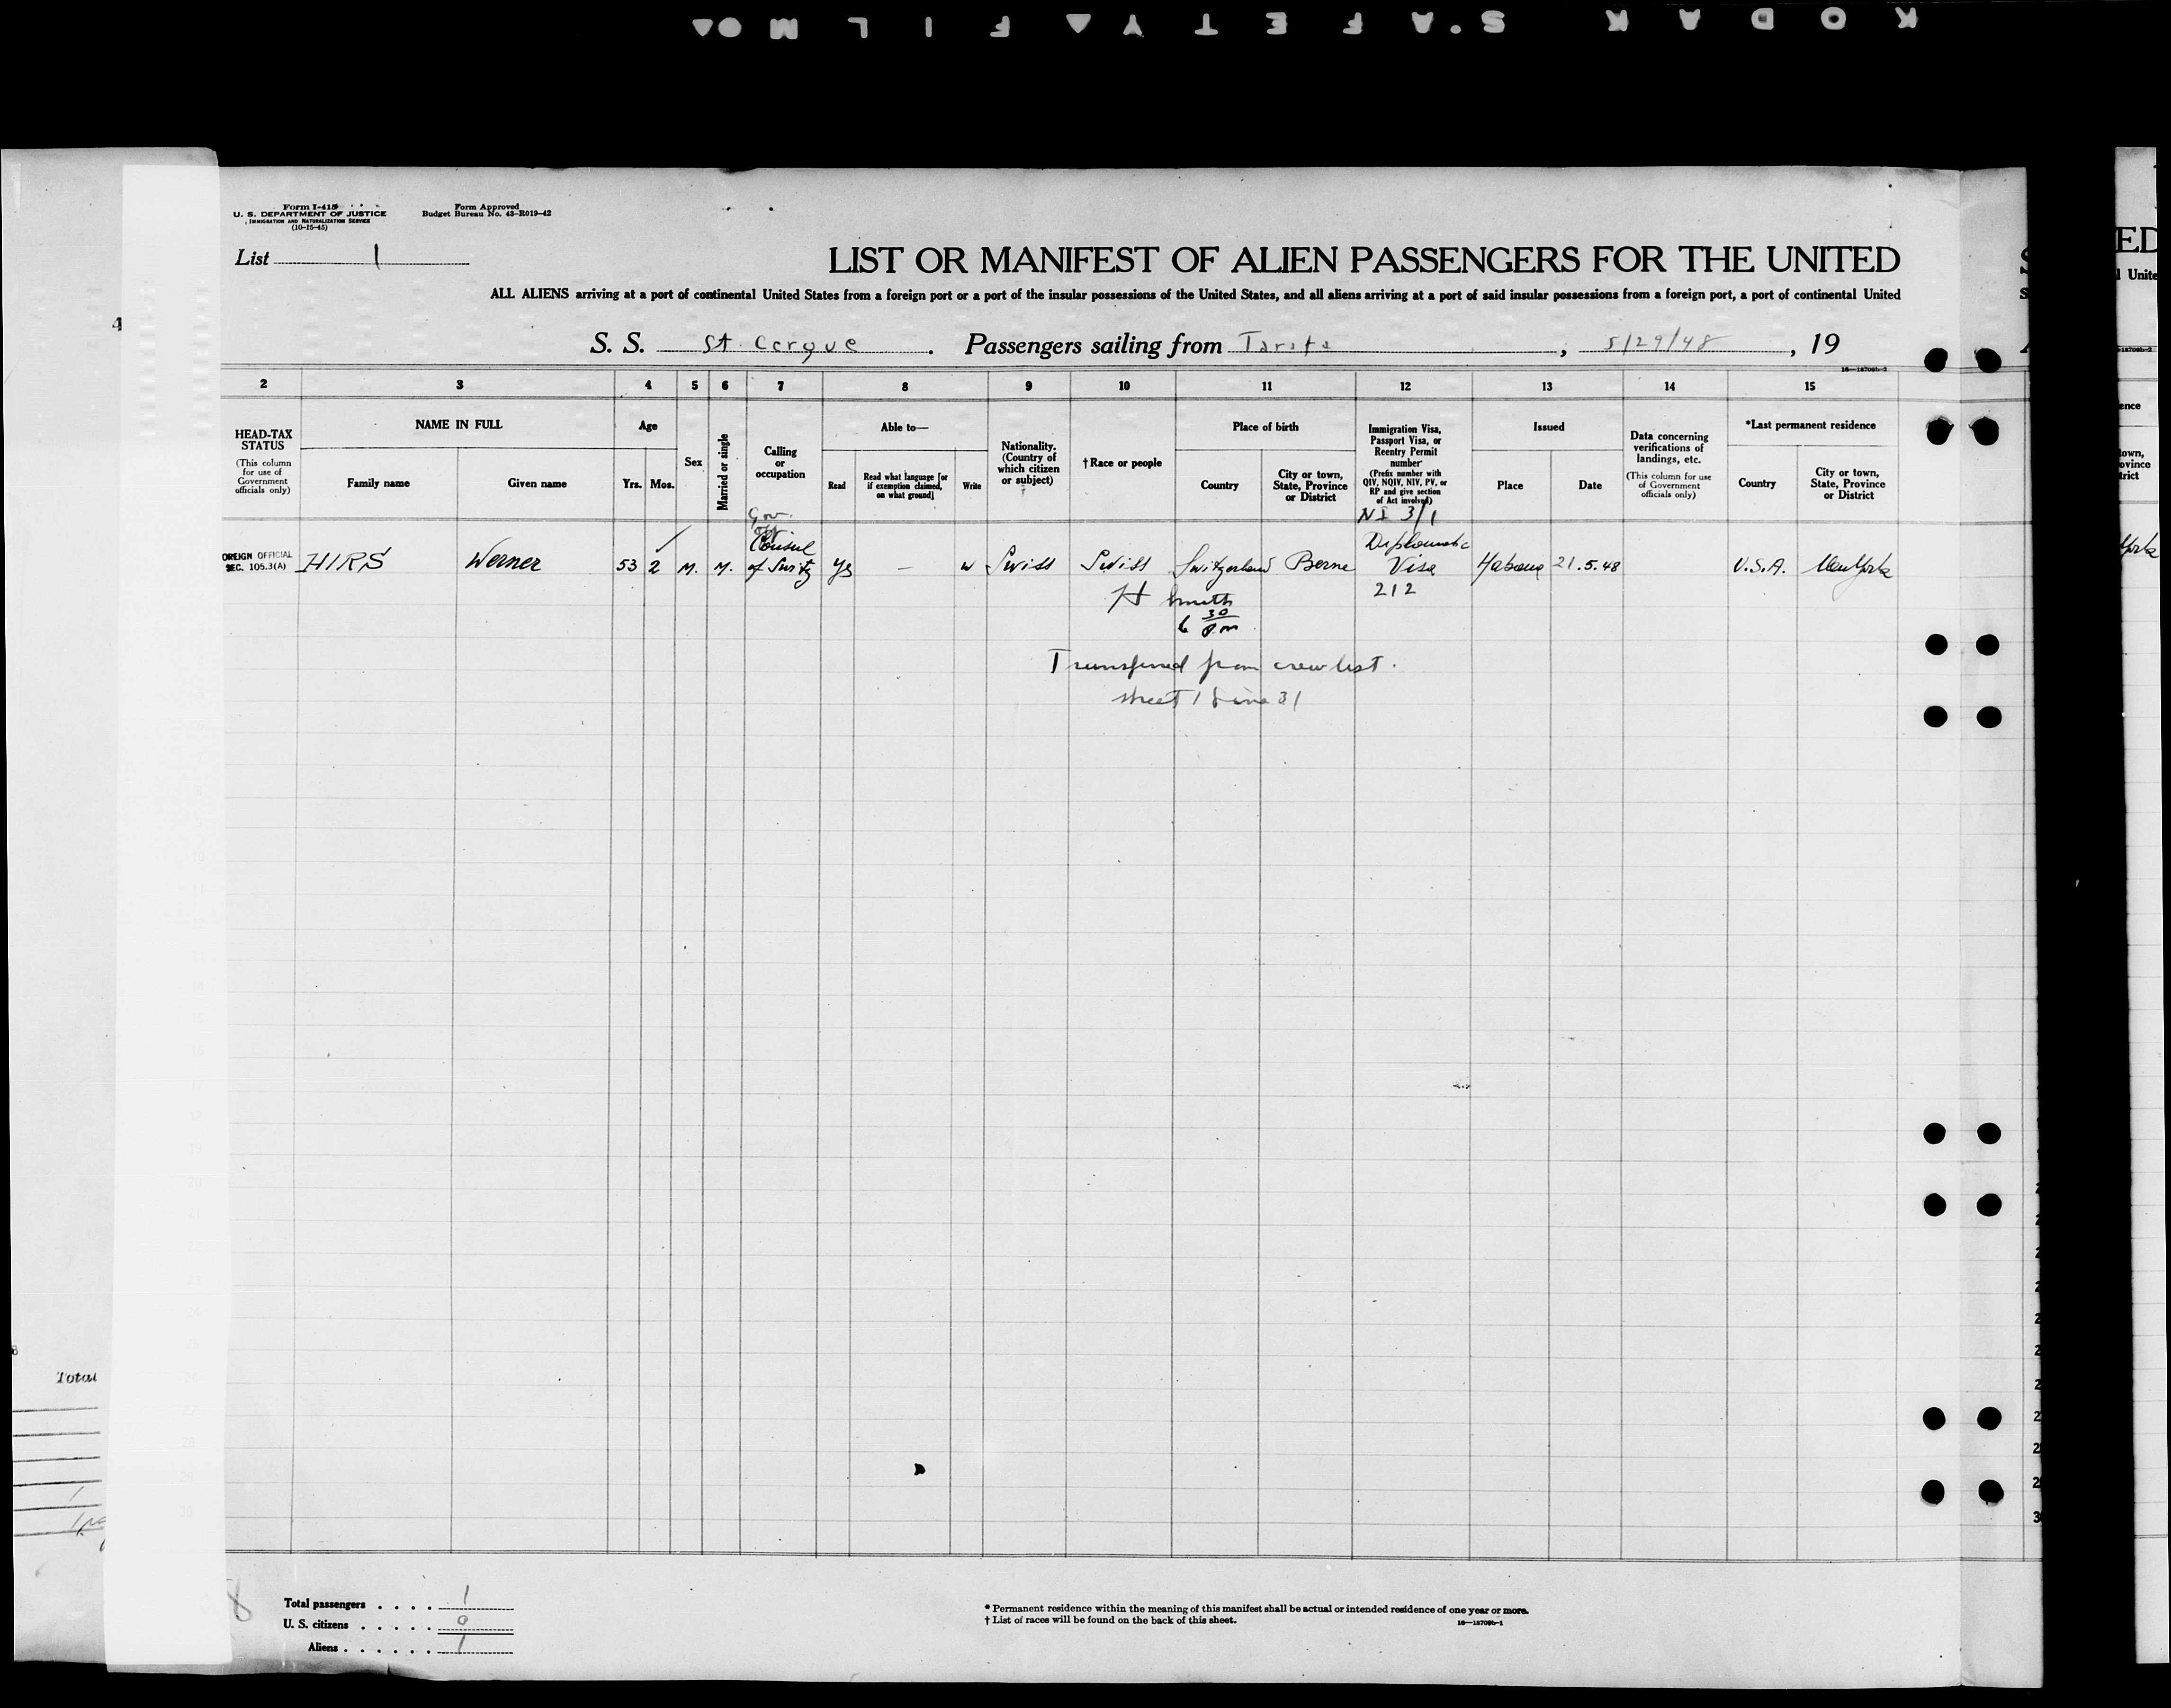 KODAK S.AFETY FILM
Form I-415
U. S. DEPARTMENT OF JUSTICE
IMMIGRATION AND NATURALIZATION SERVICE
(10-15-45)
Form Approved
Budget Bureau No. 43-R019-42
List 1
LIST OR MANIFEST OF ALIEN PASSENGERS FOR THE UNITED
ALL ALIENS arriving at a port of continental United States from a foreign port or a port of the insular possessions of the United States, and all aliens arriving at a port of said insular possessions from a foreign port, a port of continental United
S. S. St Cergue . Passengers sailing from Tarafa , 5/29/48 , 19
16—18709b-2
2 3 4 5 6 7 8 9 10 11 12 13 14 15
HEAD-TAX STATUS
(This column for use of Government officials only)
NAME IN FULL
Family name
Given name
Age
Yrs.
Mos.
Sex
Married or single
Calling or occupation
Able to—
Read
Read what language [or if exemption claimed, on what ground]
Write
Nationality. (Country of which citizen or subject)
†Race or people
Place of birth
Country
City or town, State, Province or District
Immigration Visa, Passport Visa, or Reentry Permit number
(Prefix number with QIV, NQIV, NIV, PV, or RP and give section of Act involved)
Issued
Place
Date
Data concerning verifications of landings, etc.
(This column for use of Government officials only)
*Last permanent residence
Country
City or town, State, Province or District
Gov. off.
NI 3/1
OREIGN OFFICIAL
SEC. 105.3(A)
HIRS Werner 53 2 M. M. Consul of Switz Yes — W Swiss Swiss Switzerland Berne Diplomatic Visa 212 Habana 21.5.48 U.S.A. New York
H Smith
6 30 P.m
Transferred from crew list.
sheet 1 Line 31
Total passengers . . . . 1
U. S. citizens . . . . . 0
Aliens . . . . . . 1
* Permanent residence within the meaning of this manifest shall be actual or intended residence of one year or more.
† List of races will be found on the back of this sheet.
16—18709b-1
4
Total